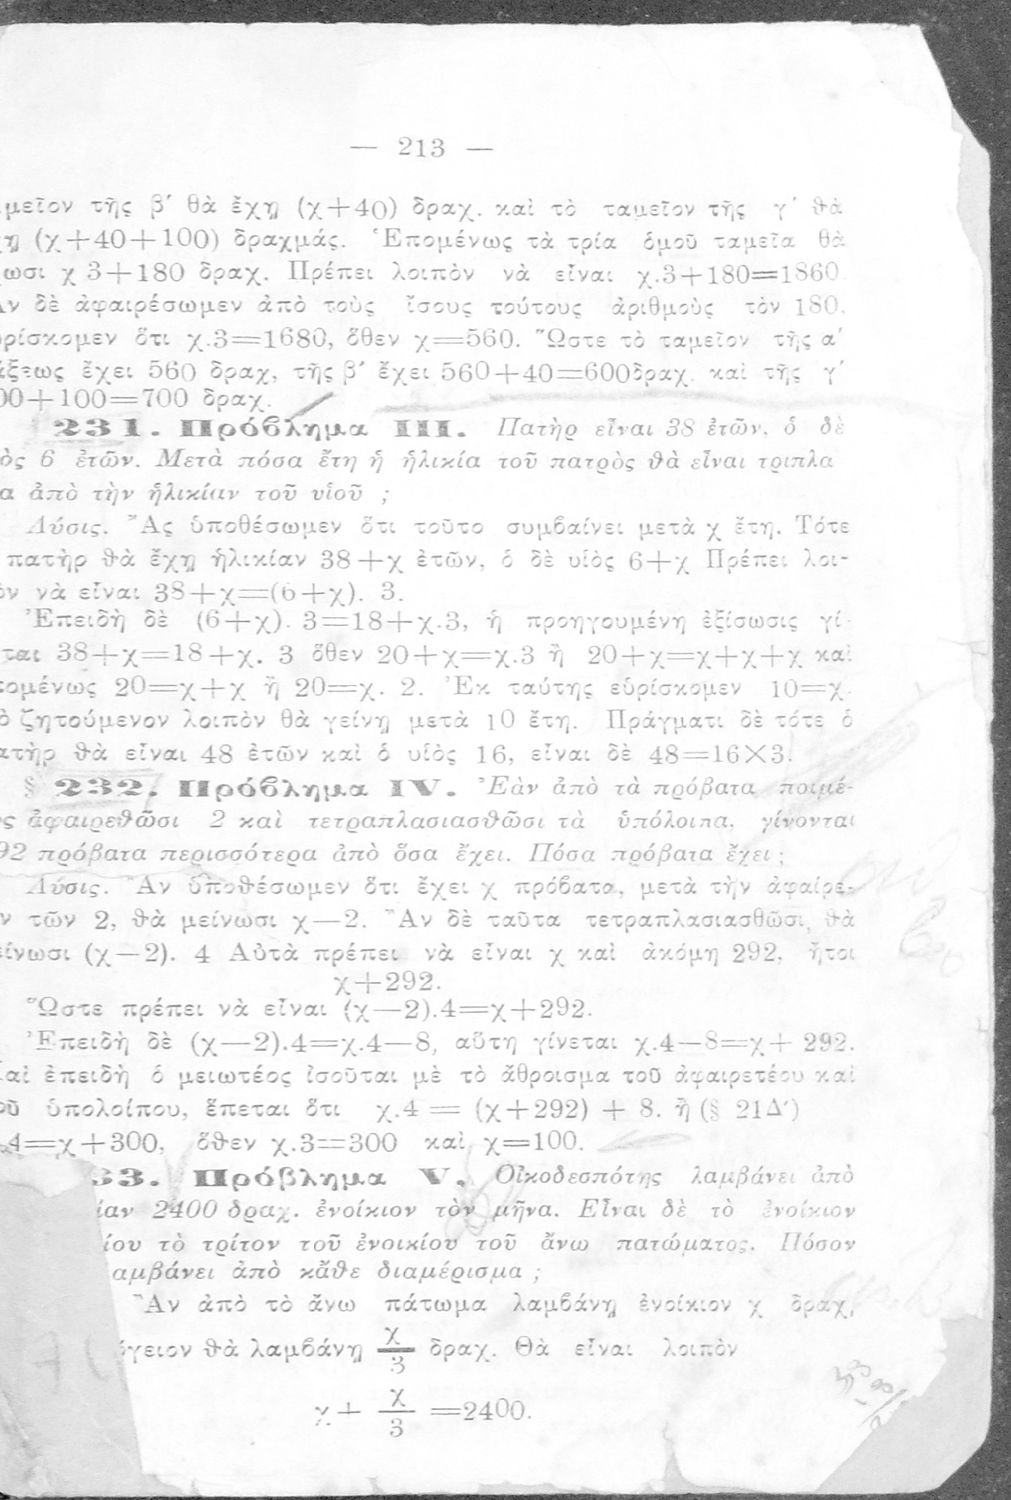 — 213 —
μεῖον τῆς β′ θὰ ἔχῃ (χ+40) δραχ. καὶ τὸ ταμεῖον τῆς γ′ θὰ
χῃ (χ+40+100) δραχμάς. Ἑπομένως τὰ τρία ὁμοῦ ταμεῖα θὰ
ωσι χ 3+180 δραχ. Πρέπει λοιπὸν νὰ εἶναι χ.3+180=1860.
ν δὲ ἀφαιρέσωμεν ἀπὸ τοὺς ἴσους τούτους ἀριθμοὺς τὸν 180,
ρίσκομεν ὅτι χ.3=1680, ὅθεν χ=560. Ὥστε τὸ ταμεῖον τῆς α′
άξεως ἔχει 560 δραχ, τῆς β′ ἔχει 560+40=600δραχ. καὶ τῆς γ′
00+100=700 δραχ.
231. Πρόβλημα III. Πατὴρ εἶναι 38 ἐτῶν, ὁ δὲ
ὸς 6 ἐτῶν. Μετὰ πόσα ἔτη ἡ ἡλικία τοῦ πατρὸς θὰ εἶναι τριπλα
α ἀπὸ τὴν ἡλικίαν τοῦ υἱοῦ ;
Λύσις. Ἂς ὑποθέσωμεν ὅτι τοῦτο συμβαίνει μετὰ χ ἔτη. Τότε
πατὴρ θὰ ἔχῃ ἡλικίαν 38+χ ἐτῶν, ὁ δὲ υἱὸς 6+χ Πρέπει λοι-
ὸν νὰ εἶναι 38+χ=(6+χ). 3.
Ἐπειδὴ δὲ (6+χ). 3=18+χ.3, ἡ προηγουμένη ἐξίσωσις γί-
ται 38+χ=18+χ. 3 ὅθεν 20+χ=χ.3 ἢ 20+χ=χ+χ+χ καὶ
πομένως 20=χ+χ ἢ 20=χ. 2. Ἐκ ταύτης εὑρίσκομεν 10=χ.
ὸ ζητούμενον λοιπὸν θὰ γείνῃ μετὰ 10 ἔτη. Πράγματι δὲ τότε ὁ
ατὴρ θὰ εἶναι 48 ἐτῶν καὶ ὁ υἱὸς 16, εἶναι δὲ 48=16×3.
§ 232. Πρόβλημα IV. Ἐὰν ἀπὸ τὰ πρόβατα ποιμέ-
ς ἀφαιρεθῶσι 2 καὶ τετραπλασιασθῶσι τὰ ὑπόλοιπα, γίνονται
92 πρόβατα περισσότερα ἀπὸ ὅσα ἔχει. Πόσα πρόβατα ἔχει ;
Λύσις. Ἂν ὑποθέσωμεν ὅτι ἔχει χ πρόβατα, μετὰ τὴν ἀφαίρε-
ν τῶν 2, θὰ μείνωσι χ—2. Ἂν δὲ ταῦτα τετραπλασιασθῶσι, θὰ
είνωσι (χ—2). 4 Αὐτὰ πρέπει νὰ εἶναι χ καὶ ἀκόμη 292, ἤτοι
χ+292.
Ὥστε πρέπει νὰ εἶναι (χ—2).4=χ+292.
Ἐπειδὴ δὲ (χ—2).4=χ.4—8, αὕτη γίνεται χ.4—8=χ+ 292.
αὶ ἐπειδὴ ὁ μειωτέος ἰσοῦται μὲ τὸ ἄθροισμα τοῦ ἀφαιρετέου καὶ
οῦ ὑπολοίπου, ἕπεται ὅτι χ.4 = (χ+292) + 8. ἢ (§ 21Δ′)
.4=χ+300, ὅθεν χ.3=300 καὶ χ=100.
33. Πρόβλημα V. Οἰκοδεσπότης λαμβάνει ἀπὸ
ίαν 2400 δραχ. ἐνοίκιον τὸν μῆνα. Εἶναι δὲ τὸ ἐνοίκιον
ίου τὸ τρίτον τοῦ ἐνοικίου τοῦ ἄνω πατώματος. Πόσον
αμβάνει ἀπὸ κἄθε διαμέρισμα ;
Ἂν ἀπὸ τὸ ἄνω πάτωμα λαμβάνῃ ἐνοίκιον χ δραχ,
γειον θὰ λαμβάνῃ χ/3 δραχ. Θὰ εἶναι λοιπὸν
χ+ χ/3 =2400.